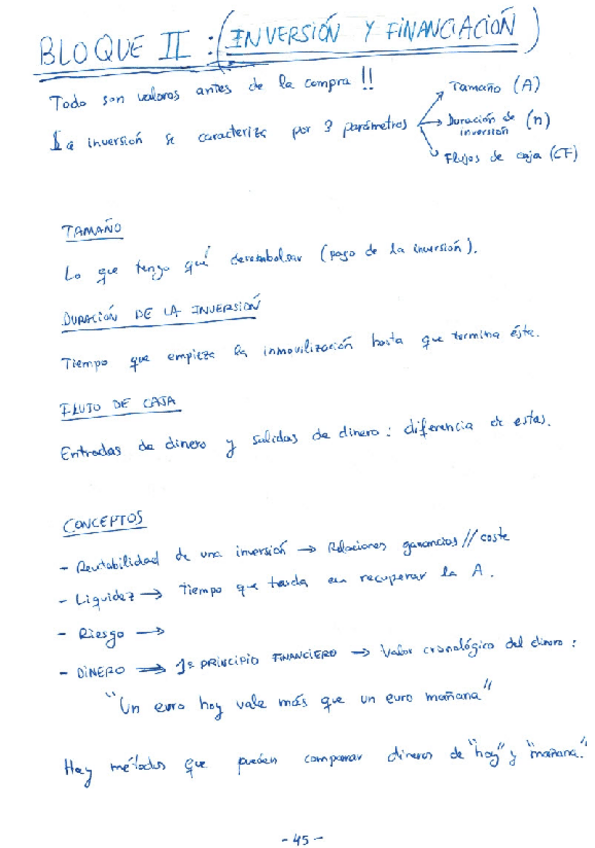 BLOQUE II : (INVERSIÓN Y FINANCIACIÓN)
Todo son valores antes de la compra !!
La inversión se caracteriza por 3 parámetros → Tamaño (A)
→ Duración de inversión (n)
→ Flujos de caja (CF)
TAMAÑO
Lo que tengo qué desembolsar (pago de la inversión).
DURACIÓN DE LA INVERSIÓN
Tiempo que empieza la inmovilización hasta que termina éste.
FLUJO DE CAJA
Entradas de dinero y salidas de dinero : diferencia de estas.
CONCEPTOS
- Rentabilidad de una inversión → Relaciones ganancias // coste
- Liquidez → Tiempo que tarda en recuperar la A.
- Riesgo →
- DINERO → 1º PRINCIPIO FINANCIERO → Valor cronológico del dinero :
"Un euro hoy vale más que un euro mañana"
Hay métodos que pueden comparar dineros de "hoy" y "mañana."
- 45 -